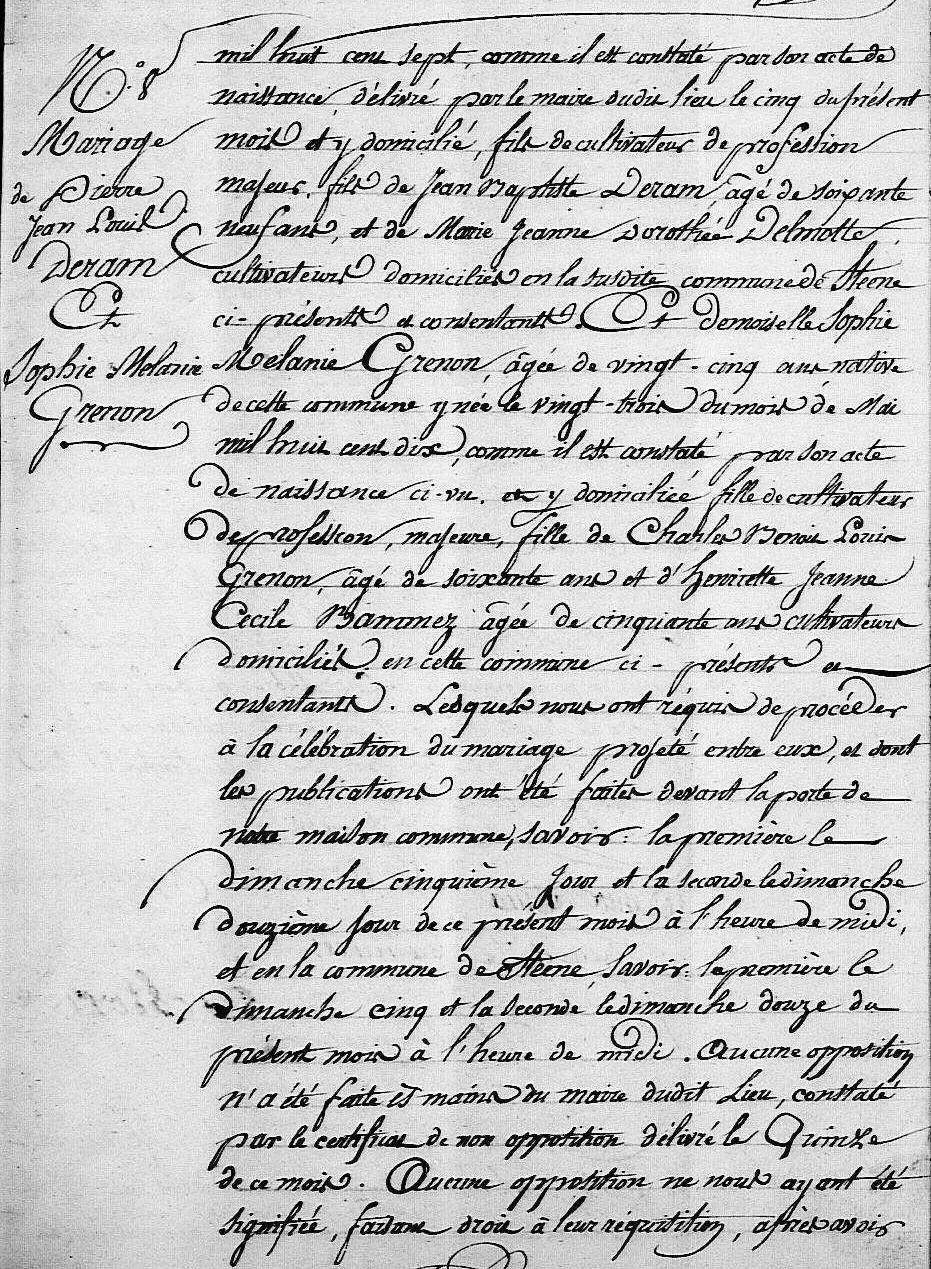 N.° 8
Mariage
de Pierre
Jean Louis
Deram
Et
Sophie Melanie
Grenon
mil huit cent sept, comme il est constaté par son acte de
naissance délivré par le maire dudit lieu le cinq du présent
mois et y domicilié, fils de cultivateur de profession
majeur, fils de Jean Baptiste Deram, âgé de soixante
neuf ans, et de Marie Jeanne Dorothée Delmotte,
cultivateurs domiciliés en la susdite commune de Steene
ci-présents et consentants. Et demoiselle Sophie
Melanie Grenon, âgée de vingt-cinq ans native
de cette commune y née le vingt-trois du mois de Mai
mil huit cent dix, comme il est constaté par son acte
de naissance ci-vu. et y domicilié fille de cultivateur
de profession, majeure, fille de Charles Benoit Louis
Grenon, âgé de soixante ans et d'henriette Jeanne
Cecile Bammez âgée de cinquante ans cultivateurs
domiciliés en cette commune ci-présents et
consentants. Lesquels nous ont réquis de procéder
à la célébration du mariage projeté entre eux, et dont
les publications ont été faites devant la porte de
notre maison commune, savoir: la première le
dimanche cinquième jour et la seconde le dimanche
douzième jour de ce présent mois à l'heure de midi,
et en la commune de Steene, savoir: la première le
dimanche cinq et la seconde le dimanche douze du
présent mois à l'heure de midi. Aucune opposition
n'a été faite ès mains du maire dudit Lieu, constaté
par le certificat de non opposition délivré le Quinze
de ce mois. Aucune opposition ne nous ayant été
signifiée, faisant droit à leur réquisition, après avoir